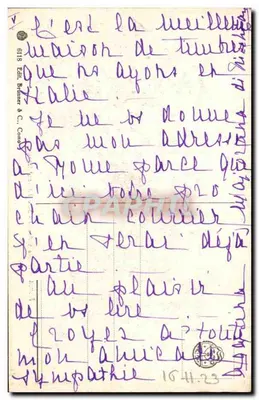 C'est la meilleure
maison de timbres
que ns ayons en
Italie.
Je ne vs donne
pas mon adresse
a Rome parce que
d'ici votre pro
chain courrier
j'en serai déjà
partie
au plaisir
de vs lire
Croyez a toute
mon amicale
sympathie
16-11-23
6118 Edit. Brunner & C., Como